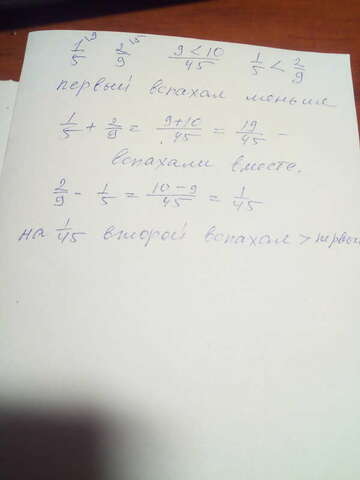 1/5 ⁹ 2/9 ⁵ 9<10/45 1/5 < 2/9
первый вспахал меньше
1/5 + 2/9 = 9+10/45 = 19/45 -
вспахали вместе.
2/9 - 1/5 = 10-9/45 = 1/45
на 1/45 второй вспахал >